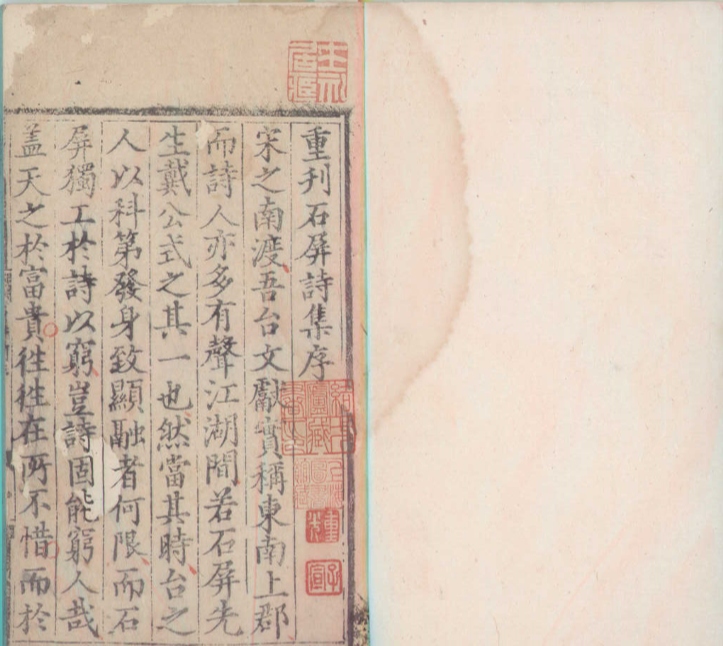 重刊石屏詩集序
宋之南渡吾台文獻實稱東南上郡
而詩人亦多有聲江湖間若石屏先
生戴公式之其一也然當其時台之
人以科第發身致顯融者何限而石
屏獨工於詩以窮豈詩固能窮人哉
盖天之於富貴徃徃在所不惜而於